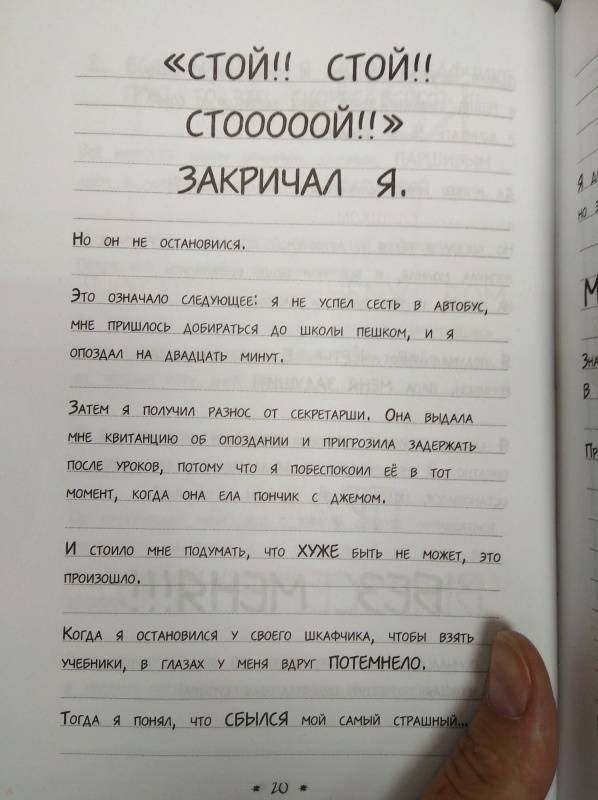 «СТОЙ!! СТОЙ!!
СТОООООЙ!!»
ЗАКРИЧАЛ Я.
Но он не остановился.
Это означало следующее: я не успел сесть в автобус,
мне пришлось добираться до школы пешком, и я
опоздал на двадцать минут.
Затем я получил разнос от секретарши. Она выдала
мне квитанцию об опоздании и пригрозила задержать
после уроков, потому что я побеспокоил её в тот
момент, когда она ела пончик с джемом.
И стоило мне подумать, что ХУЖЕ быть не может, это
произошло.
Когда я остановился у своего шкафчика, чтобы взять
учебники, в глазах у меня вдруг ПОТЕМНЕЛО.
Тогда я понял, что СБЫЛСЯ мой самый страшный...
* 20 *